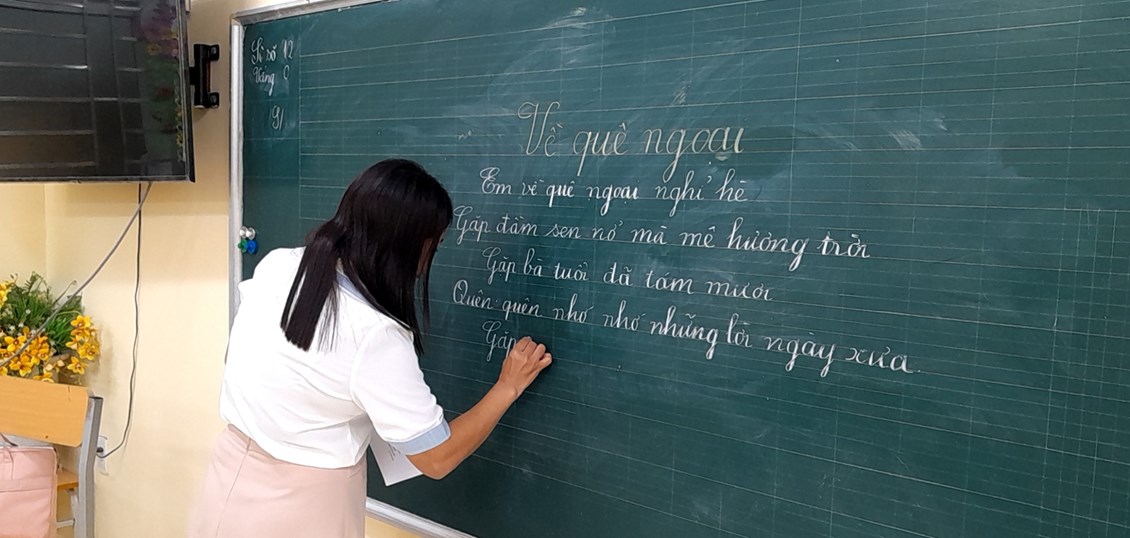 Sĩ số 12
Vắng 0
91
Về quê ngoại
Em về quê ngoại nghỉ hè
Gặp đầm sen nở mà mê hương trời
Gặp bà tuổi đã tám mươi
Quên quên nhớ nhớ những lời ngày xưa.
Gặp